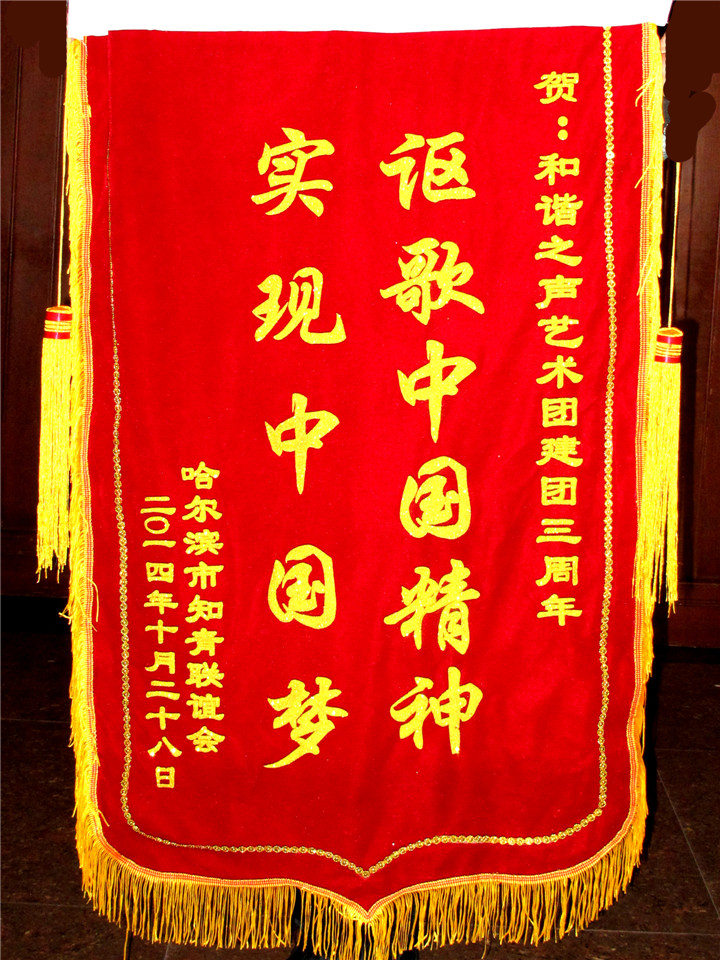 贺：和谐之声艺术团建团三周年
讴歌中国精神
实现中国梦
哈尔滨市知青联谊会
二〇一四年十月二十八日